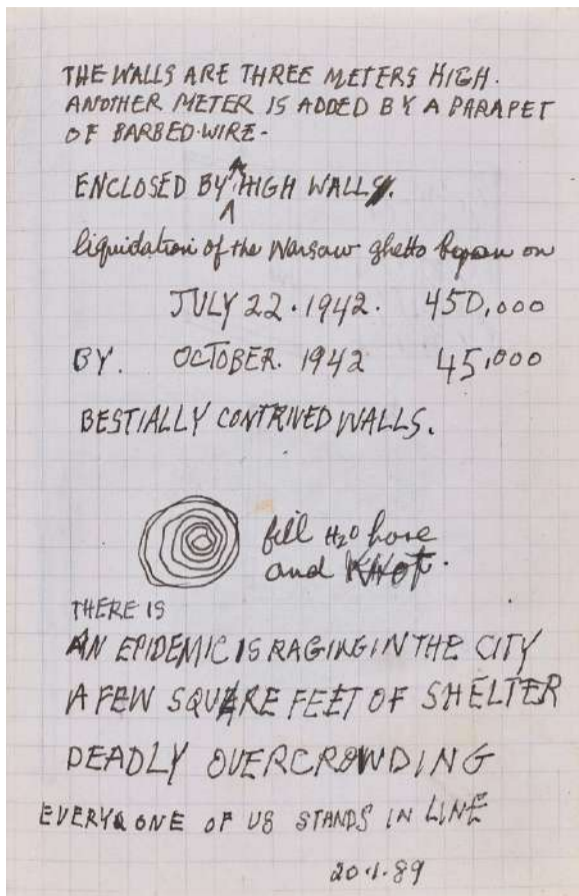 THE WALLS ARE THREE METERS HIGH.
ANOTHER METER IS ADDED BY A PARAPET
OF BARBED-WIRE-
ENCLOSED BY HIGH WALLS.
liquidation of the Warsaw ghetto began on
JULY 22.1942. 450,000
BY. OCTOBER. 1942 45,000
BESTIALLY CONTRIVED WALLS.
fill H2O hose
and KNOT.
THERE IS
AN EPIDEMIC IS RAGING IN THE CITY
A FEW SQUARE FEET OF SHELTER
DEADLY OVERCROWDING
EVERY ONE OF US STANDS IN LINE
20.1.89